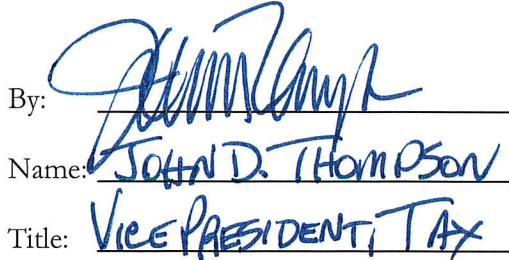 By:
Name: JOHN D. THOMPSON
Title: VICE PRESIDENT, TAX